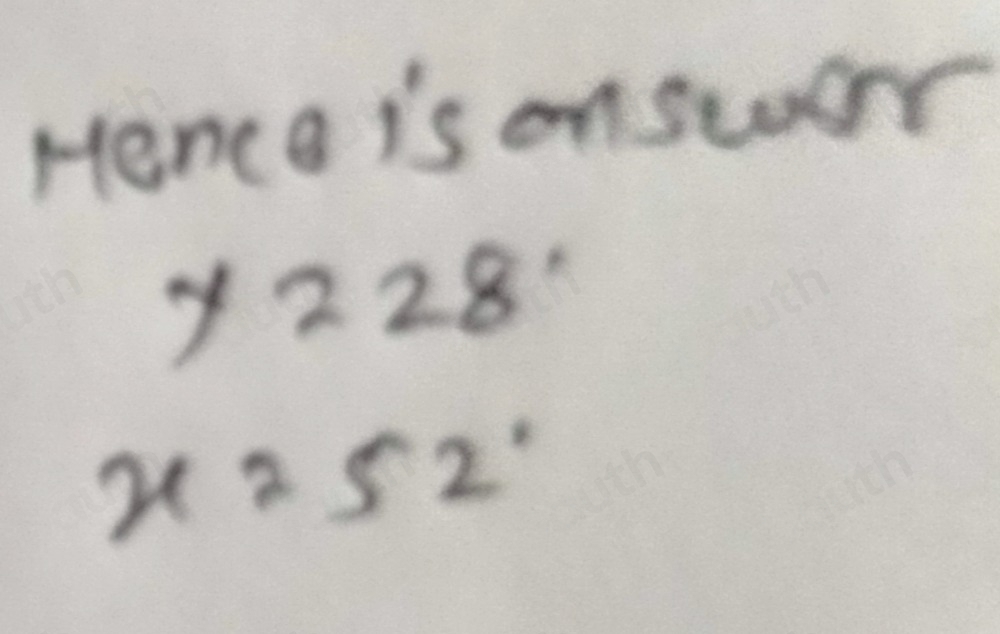 Hence is answer
y = 28°
x = 52°